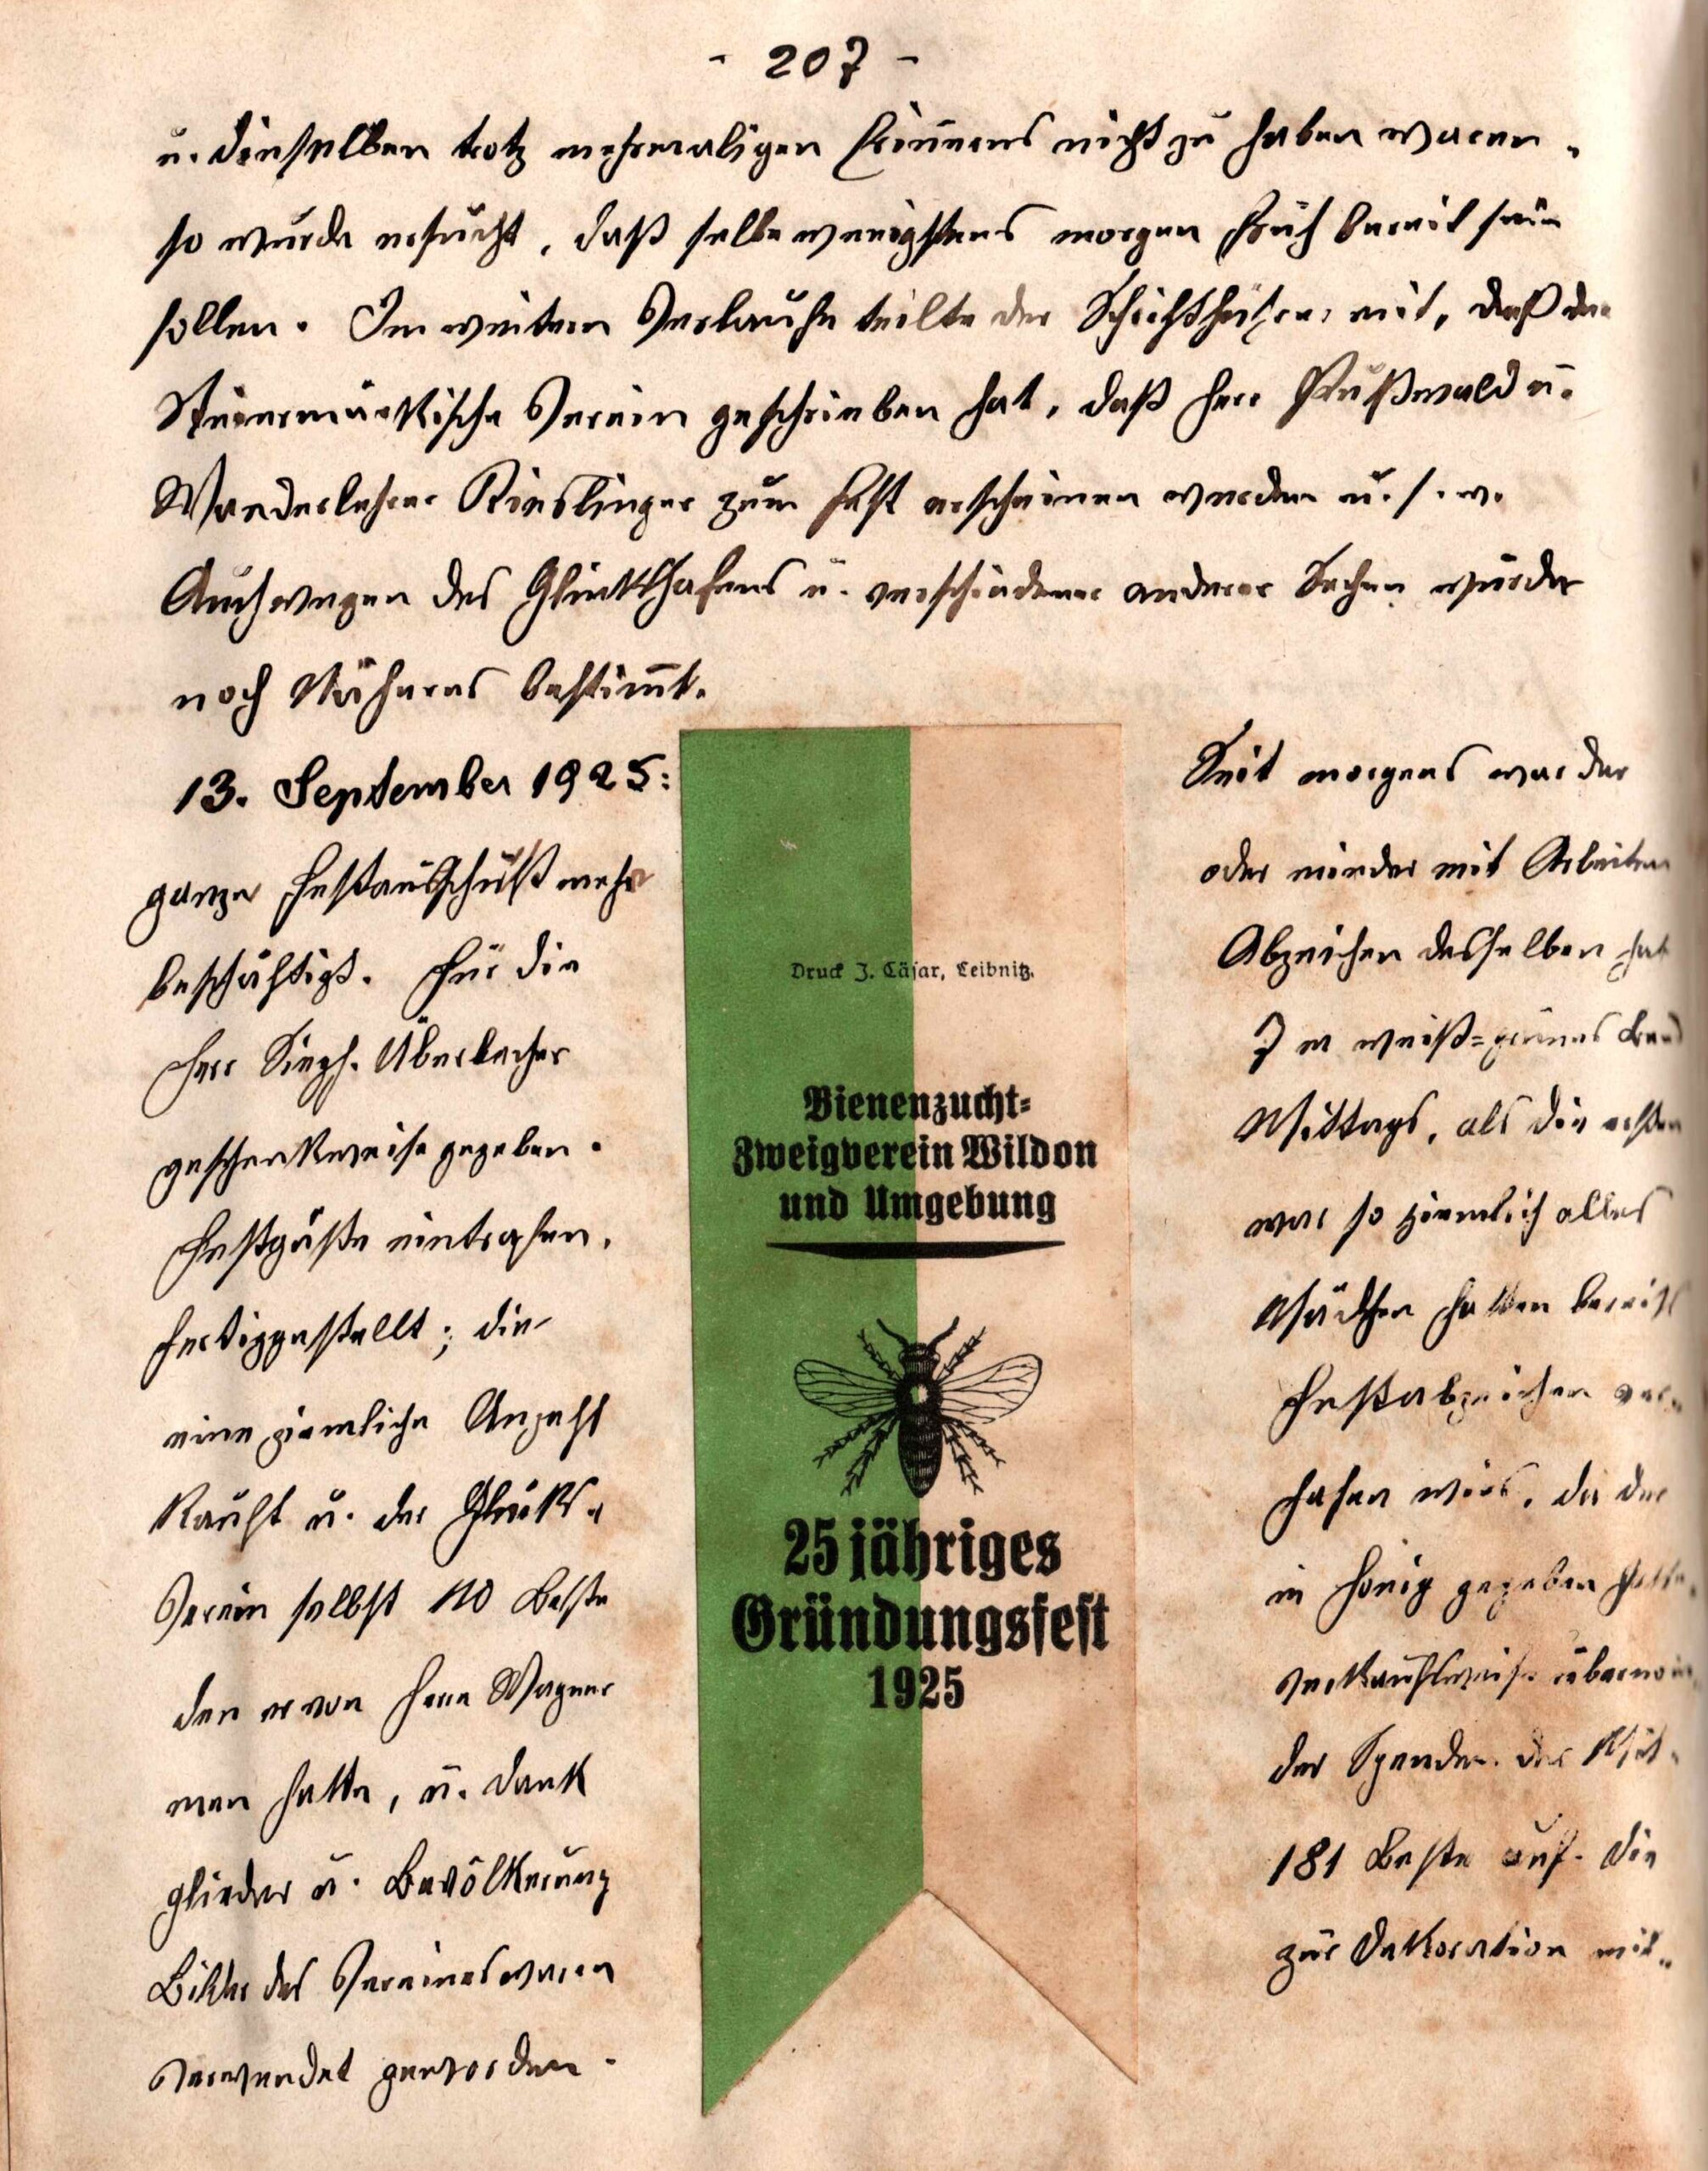 - 207 -
u. dieselben trotz mehrmaligen Erinnerns nicht zu haben waren,
so wurde ersucht, daß selbe wenigstens morgen früh bereit sein
sollen. Im weitern Verlaufe teilte der Schriftführer mit, daß der
Steiermärkische Verein geschrieben hat, daß Herr Pußwald u.
Wanderlehrer Rieslinger zum Fest erscheinen werden u. s. w.
Auch wegen des Glückshafens u. verschiedener anderer Sachen wurde
noch Näheres bestimmt.
13. September 1925: Seit morgens war der
ganze Festausschuß mehr oder minder mit Arbeiten
beschäftigt. Für die Abzeichen desselben hat
Herr Siegf. Überbacher 7 m weiß=grünes Band
geschenkweise gegeben. Mittags, als die ersten
Festgäste eintrafen, war so ziemlich alles
fertiggestellt; die Mädchen hatten bereits
eine ziemliche Anzahl Festabzeichen ver-
kauft u. der Glücks- hafen wies, da der
Verein selbst 110 Beste in Honig gegeben hatte,
den er von Herrn Wagner verkaufsweise übernom-
men hatte, u. dank der Spenden der Mit-
glieder u. Bevölkerung 181 Beste auf. Die
Bilder des Vereines waren zur Dekoration mit-
verwendet geworden.
Druck J. Cäsar, Leibnitz.
Bienenzucht-
Zweigverein Wildon
und Umgebung
25 jähriges
Gründungsfest
1925